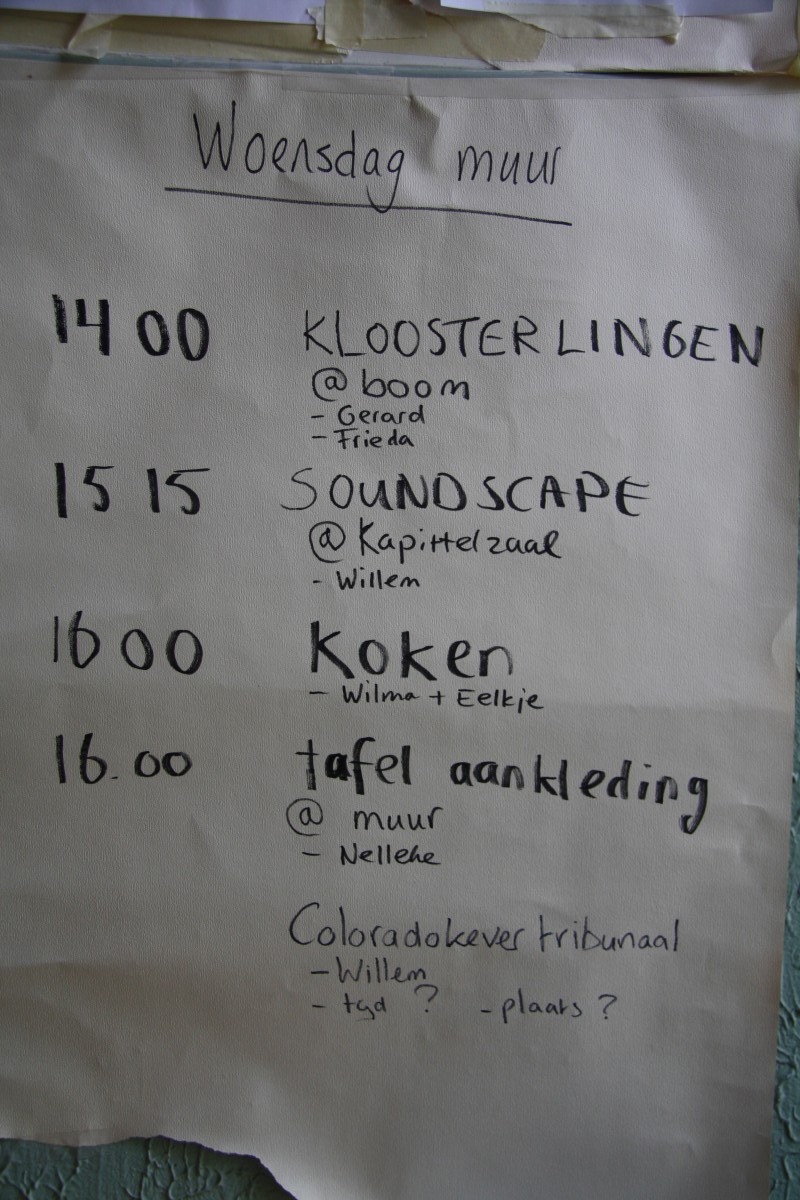 Woensdag muur
14 00 KLOOSTERLINGEN
@ boom
- Gerard
- Frieda
15 15 SOUNDSCAPE
@ Kapittelzaal
- Willem
16 00 Koken
- Wilma + Eelkje
16.00 tafel aankleding
@ muur
- Nelleke
Coloradokever tribunaal
- Willem
- tyd ? - plaats ?